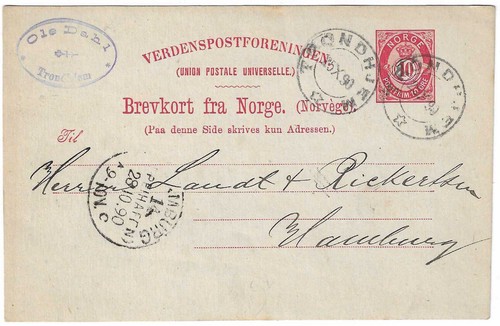 Ole Dahl
VERDENSPOSTFORENINGEN
(UNION POSTALE UNIVERSELLE.)
Brevkort fra Norge. (Norvège).
(Paa denne Side skrives kun Adressen.)
TRONDHJEM
X 90
TRONDHJEM
NORGE
10
POSTFRIM. 10 ØRE
Til
Herren Landt & Rickertsen
Hamburg
HAMBURG
14
28.10.90
9-10V.